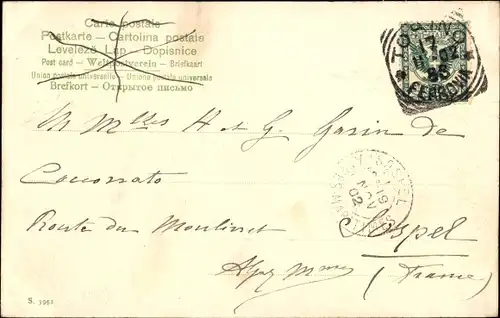 Carte postale
Postkarte — Cartolina postale
Levelező Lap — Dopisnice
Post card — Weltpostverein — Briefkaart
Union postale universelle — Unione postale universale
Brefkort — Открытое письмо
TORINO
7
11-02
8S
FERROVIA
M Mlles H et G. Garin de
Cocconato
SOSPEL
19
NOV
02
Route du Moulinet Sospel
Alpes Mmes (France)
S. 3951